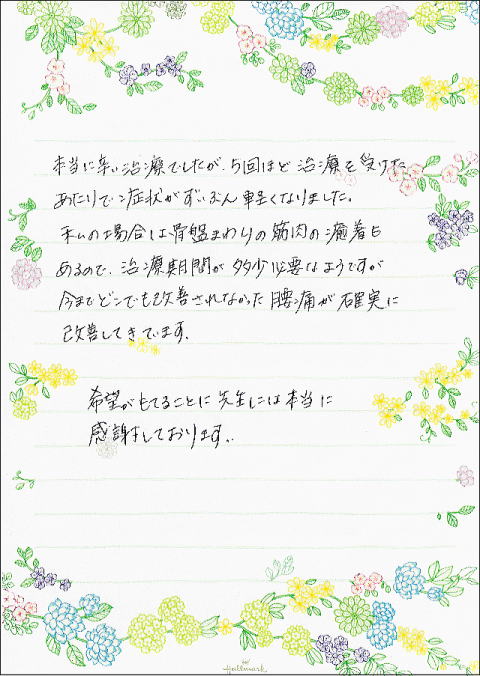 本当に辛い治療でしたが、5回ほど治療を受けた
あたりで症状がずいぶん軽くなりました。
私の場合は骨盤まわりの筋肉の癒着も
あるので、治療期間が多少必要なようですが
今までどこでも改善されなかった腰痛が確実に
改善してきています。
希望がもてることに先生には本当に
感謝しております。
Hallmark